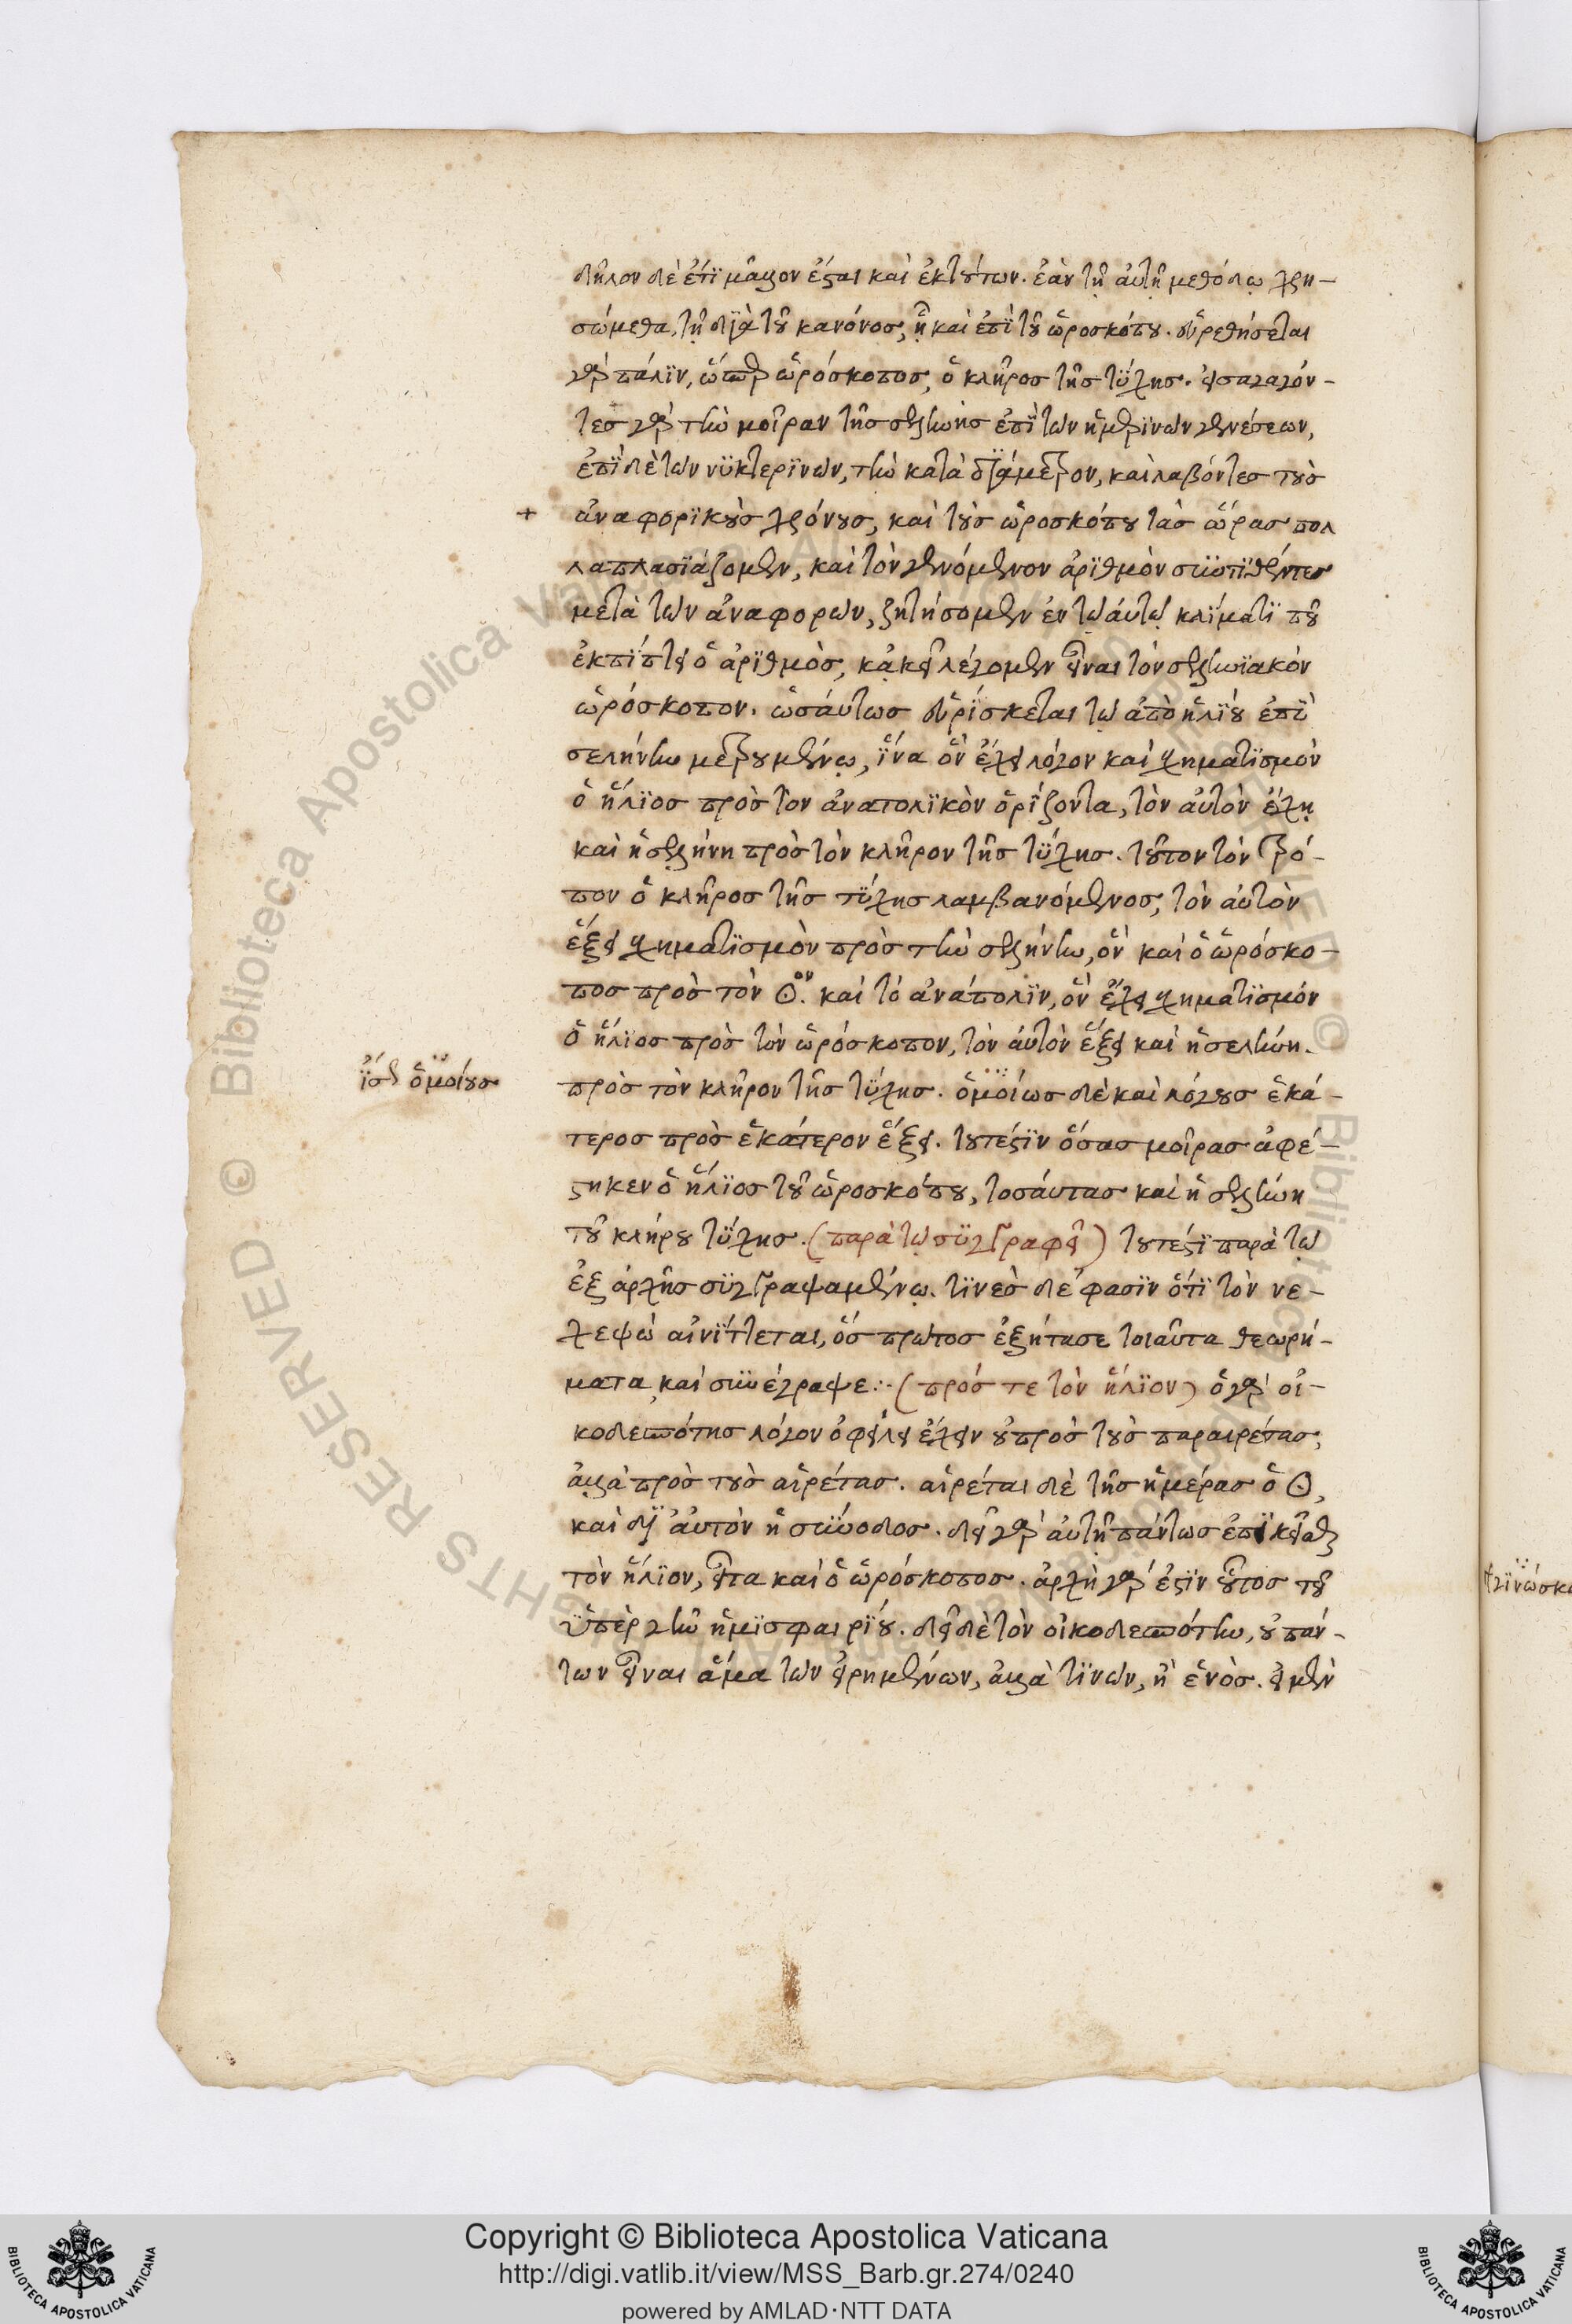 δῆλον δὲ ἔτϊ μᾶλλον ἔσται καὶ ἐκ τούτων. ἐὰν τῇ αὐτῇ μεθόδῳ χρη-
σώμεθα, τῇ δϊὰ τοῦ κανόνος, ᾗ καὶ ἐπὶ τοῦ ὡροσκόπου. εὑρεθήσεται
γὰρ πάλϊν, ὥσπερ ὡρόσκοπος, ὁ κλῆρος τῆς τΰχης. εἰσαγαγόν-
τες γὰρ τὴν μοῖραν τῆς σελήνης ἐπῒ τῶν ἡμερϊνῶν γενέσεων,
ἐπῒ δὲ τῶν νϋκτερϊνῶν, τὴν κατὰ δϊάμετρον, καὶ λαβόντες τοὺς
+ ἀναφορϊκοὺς χρόνους, καὶ τοὺς ὡροσκόπου τὰς ὥρας πολ
λαπλασϊάζομεν, καὶ τὸν γενόμενον ἀρϊθμὸν συντϊθέντες
μετὰ τῶν ἀναφορῶν, ζητήσομεν ἐν τῷ αὐτῷ κλϊματϊ ποῦ
ἐκπΐπτει ὁ ἀρϊθμὸς, κἀκεῖ λέγομεν εἶναι τὸν σεληνϊακὸν
ὡρόσκοπον. ὡσαύτως εὑρΐσκεται τῷ ἀπὸ ἡλΐου ἐπῒ
σελήνην μετρουμένῳ, ἵνα ὃν ἔχει λόγον καὶ σχηματϊσμὸν
ὁ ἥλϊος πρὸς τὸν ἀνατολϊκὸν ὁρΐζοντα, τὸν αὐτὸν ἔχῃ
καὶ ἡ σελήνη πρὸς τὸν κλῆρον τῆς τΰχης. τοῦτον τὸν τρό-
πον ὁ κλῆρος τῆς τΰχης λαμβανόμενος, τὸν αὐτὸν
ἕξει σχηματϊσμὸν πρὸς τὴν σελήνην, ὃν καὶ ὁ ὡρόσκο-
πος πρὸς τὸν ☉ον. καὶ τὸ ἀνάπολϊν, ὃν ἔχει σχηματϊσμὸν
ὁ ἥλϊος πρὸς τὸν ὡρόσκοπον, τὸν αὐτὸν ἕξει καὶ ἡ σελήνη.
ἴσως ὁμοίους
πρὸς τὸν κλῆρον τῆς τΰχης. ὁμοίως δὲ καὶ λόγους ἑκά-
τερος πρὸς ἑκάτερον ἕξει. τουτέστϊν ὅσας μοίρας ἀφέ-
στηκεν ὁ ἥλϊος τοῦ ὡροσκόπου, τοσάυτας καὶ ἡ σελήνη
τοῦ κλήρου τΰχης. (παρὰ τῷ σϋγγραφεῖ) τουτέστϊ παρὰ τῷ
ἐξ ἀρχῆς σϋγγραψαμένῳ. τϊνὲς δέ φασϊν ὅτϊ τὸν νε-
χεψὼ αἰνΐττεται, ὅς πρῶτος ἐξήτασε τοιαῦτα θεωρή-
ματα, καὶ συνέγραψε :· (πρός τε τὸν ἥλϊον) ὁ γὰρ οἰ-
κοδεσπότης λόγον ὀφείλει ἔχειν οὐ πρὸς τοὺς παραιρέτας,
ἀλλὰ πρὸς τοὺς αἱρέτας. αἱρέται δὲ τῆς ἡμέρας ὁ ☉,
καὶ δϊ' αὐτὸν ἡ σύνοδος. δεῖ γὰρ αὐτῇ πάντως ἐπϊκεῖσθαι
τὸν ἥλϊον, εἶτα καὶ ὁ ὡρόσκοπος. ἀρχὴ γάρ ἐστϊν οὗτος τοῦ
ὑπὲρ γῆν ἡμϊσφαιρΐου. δεῖ δὲ τὸν οἰκοδεσπότην, οὐ πάν-
των εἶναι ἅμα τῶν εἰρημένων, ἀλλὰ τϊνῶν, ἢ ἑνὸς. εἰ μὲν
Copyright © Biblioteca Apostolica Vaticana
http://digi.vatlib.it/view/MSS_Barb.gr.274/0240
powered by AMLAD·NTT DATA